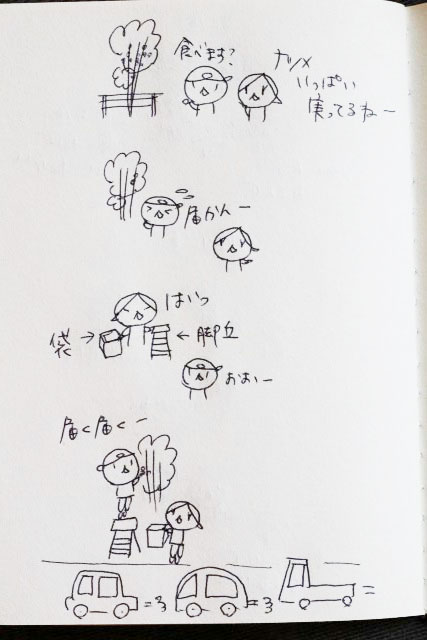 食べます?
ナツメ
いっぱい
実ってるねー
届かんー
はいっ
袋→
←脚立
おおー
届く届くー